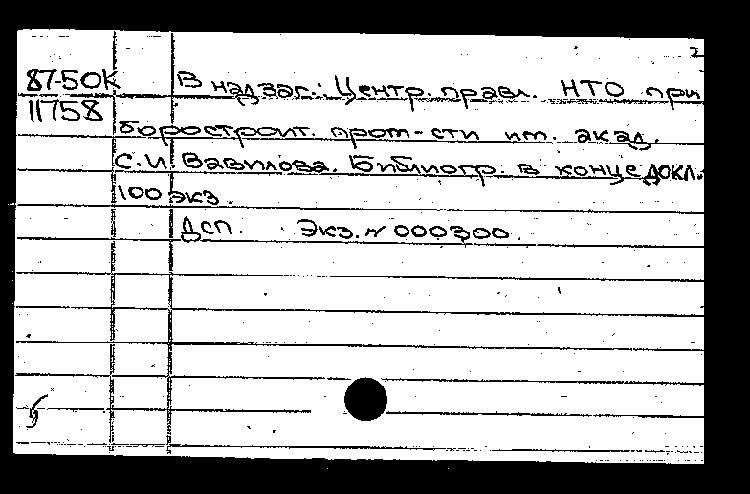 2
87-50К В надзаг.: Центр. правл. НТО при
11758
боростроит. пром-сти им. акад.
С.И. Вавилова. Библиогр. в конце докл.
100 экз.
Дсп. Экз. N 000300.